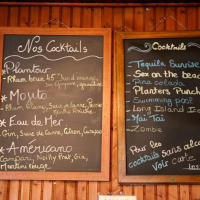 Nos Cocktails
* Planteur
- Rhum brun 45°, Jus d'orange,
* Mojito
- Rhum blanc, Sucre de canne, Perrier
Menthe fraîche
* Eau de Mer
- Gin, Sucre de canne, Citron, Curaçao
* Américano
Campari, Noilly Prat, Gin,
Martini rouge
Cocktails
Tequila Sunrise
Sex on the beach
Pina colada
Planters Punch
Swimming pool
Long Island Ice
Mai Tai
Zombie
Pour les
cocktails sans alcool
voir carte